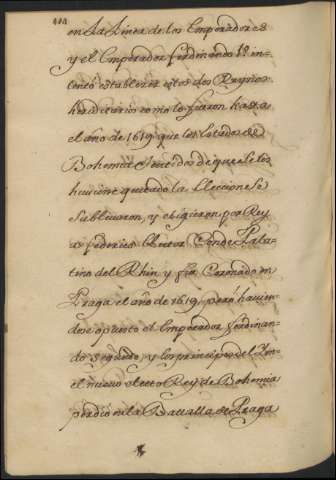 en La Linea de los Emperadores
y el Emperador ferdinando 1º in-
tentó establecer estos dos Reynos
hereditarios como lo fueron hasta
el año de 1619 que los Estados de
Bohemia sentidos de que se les
huviesse quitado la Eleccion se
sublivaron, y eligieron por Rey
a federico Elector Conde Pala-
tino del Rhin y fue Coronado en
Praga el año de 1619 pero havien-
dose opuesto el Emperador ferdinan-
do segundo y los principes del Im-
el nuevo electo Rey de Bohemia
perdio en la Battalla de Praga